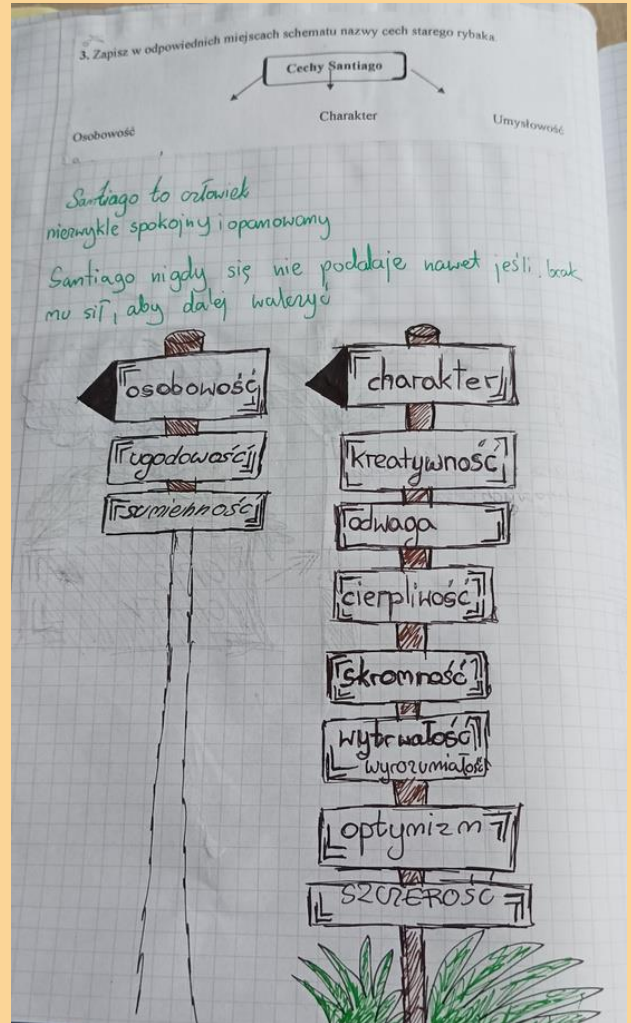 3. Zapisz w odpowiednich miejscach schematu nazwy cech starego rybaka.
Cechy Santiago
Osobowość
Charakter
Umysłowość
Santiago to człowiek
niezwykle spokojny i opanowany
Santiago nigdy się nie poddaje nawet jeśli brak
mu sił, aby dalej walczyć
osobowość
ugodowość
sumienność
charakter
kreatywność
odwaga
cierpliwość
skromność
wytrwałość
wyrozumiałość
optymizm
SZCZEROŚĆ